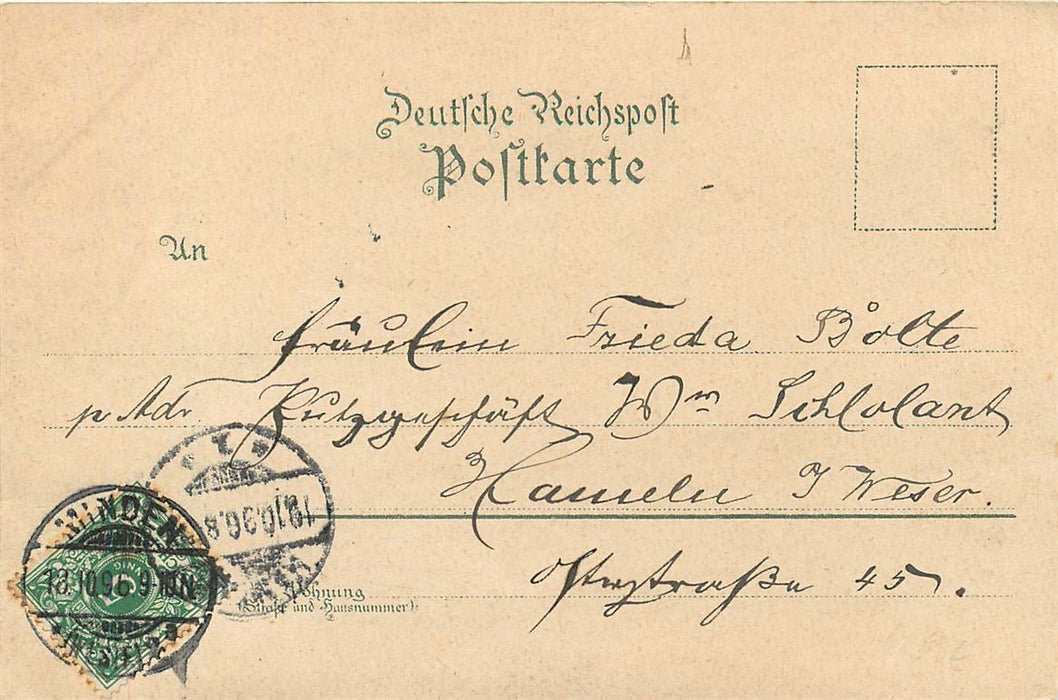 Deutsche Reichspost
Postkarte
An
Fräulein Frieda Bolte
p. Adr. Putzgeschäft Wm
Hameln / Weser.
Osterstraße 45.
Wohnung
(Straße und Hausnummer)
MINDEN
18.10.96.9-10N
(WESTF.)
1
19.10.96.8